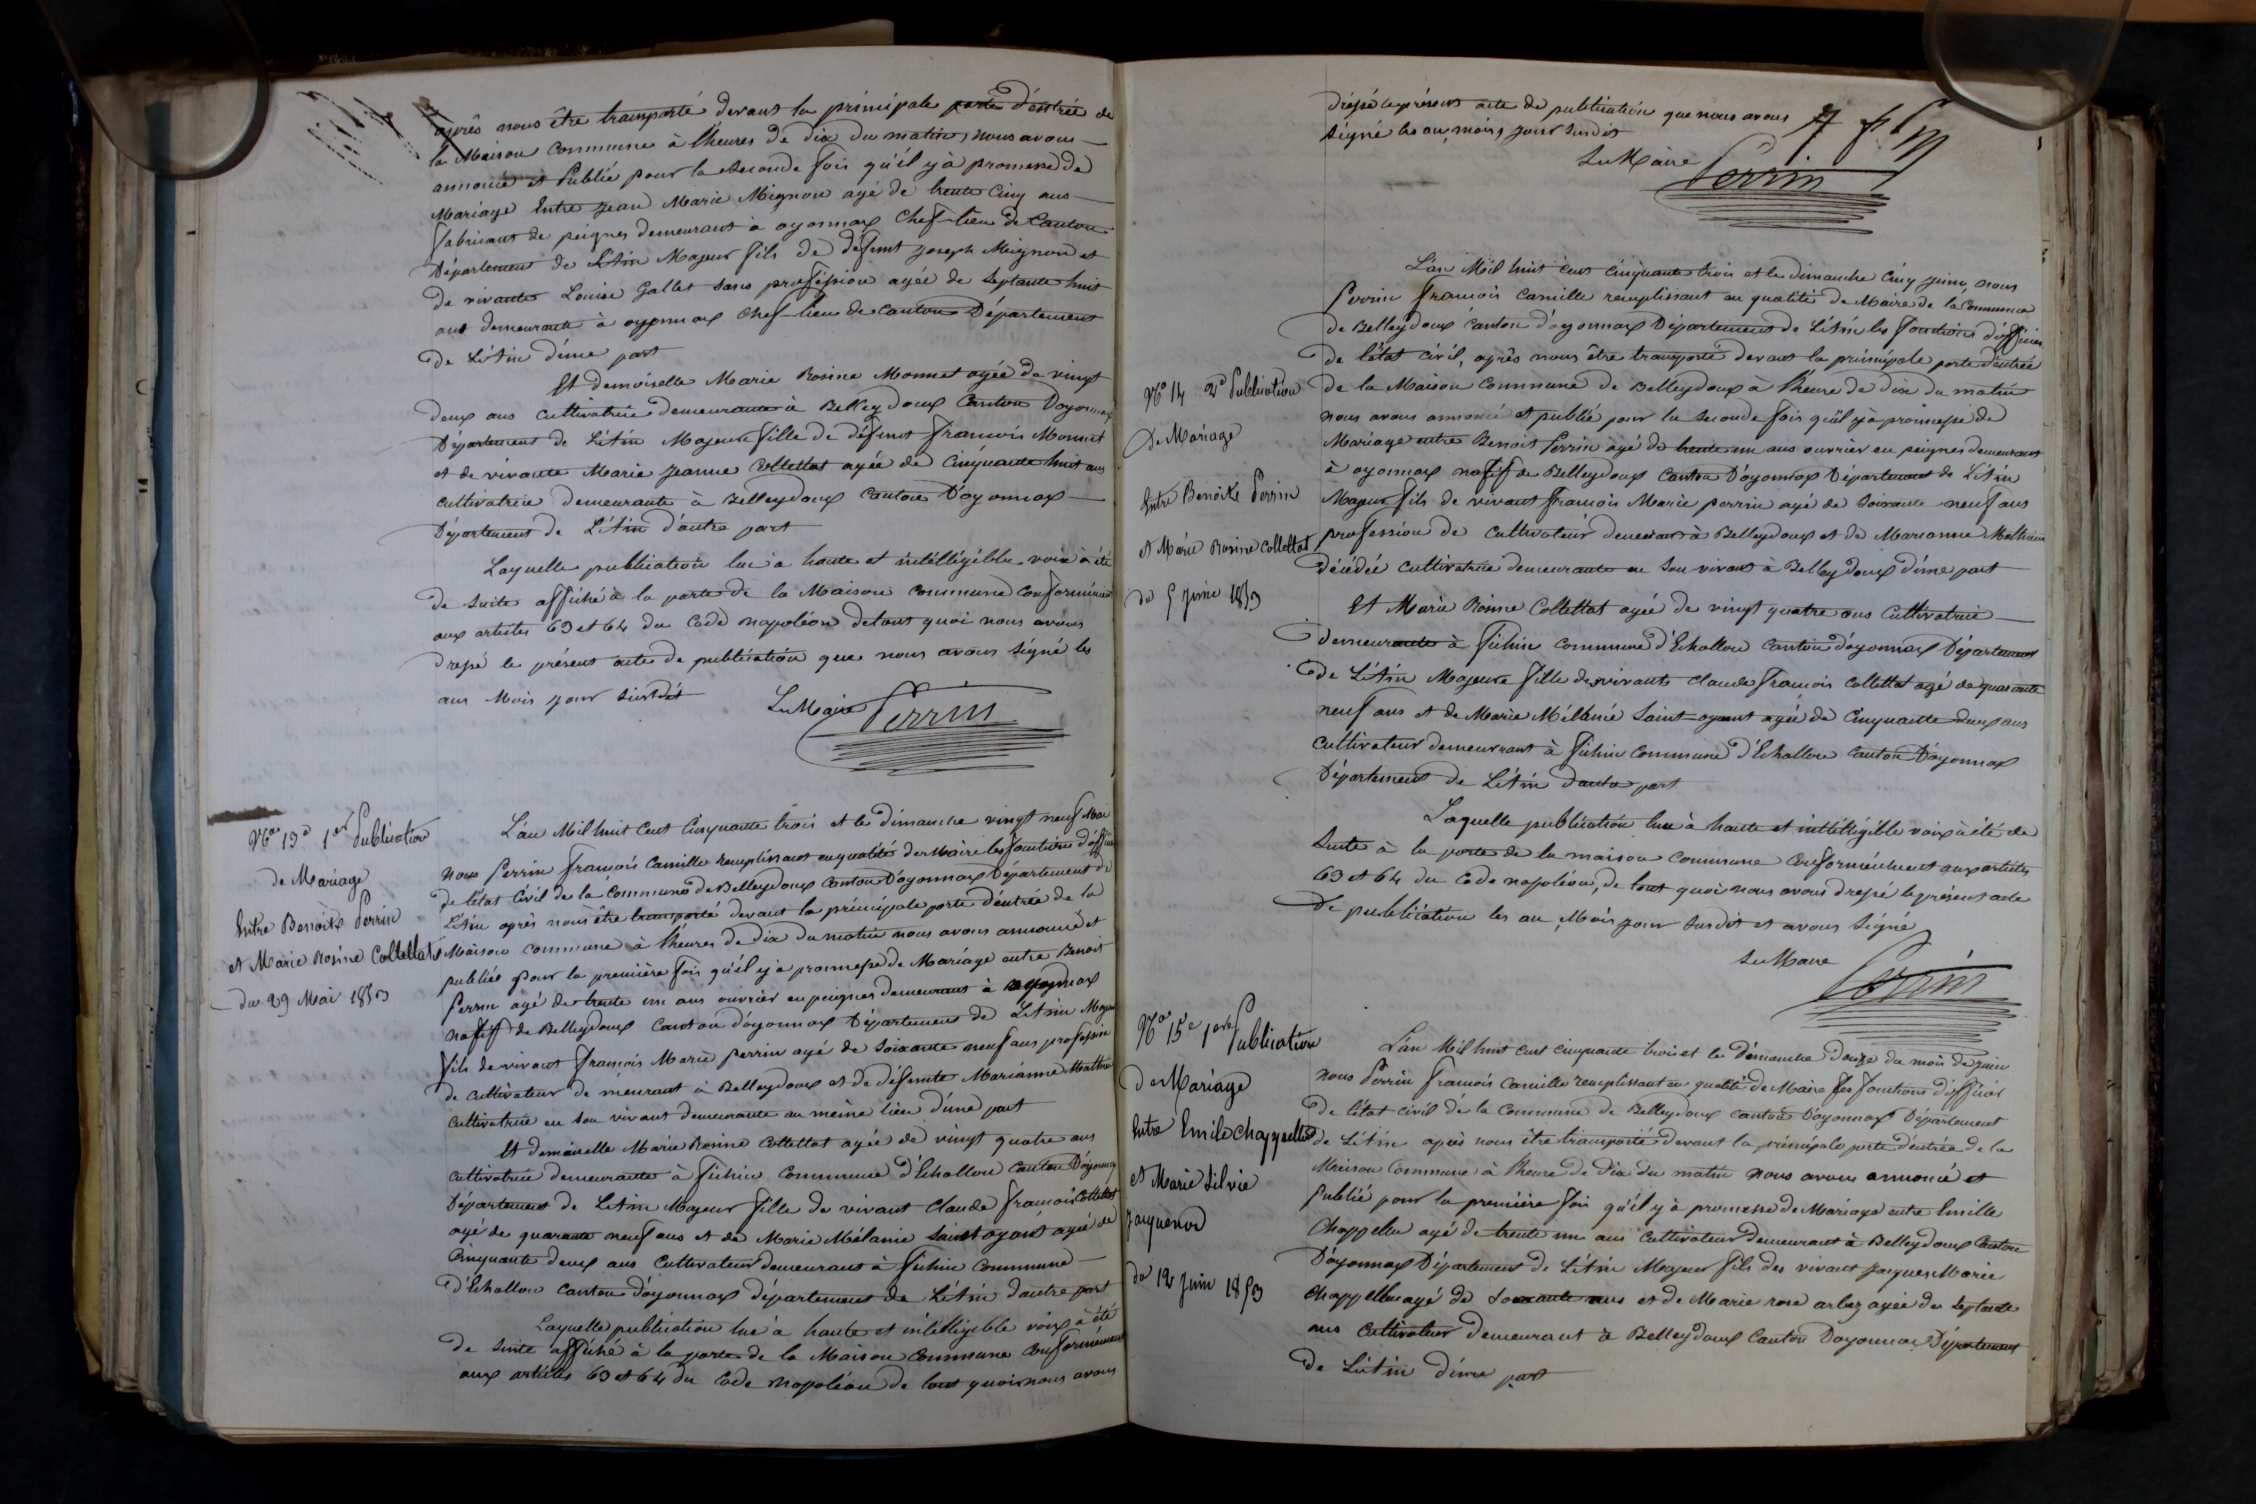 après nous être transporté devant la principale porte d'entrée de
la Maison Commune à l'heures de dix du matin, nous avons
annoncé et Publié pour la seconde fois qu'il y à promesse de
Mariage Entre Jean Marie Mignon agé de trente Cinq ans
fabricant de peignes demeurant à oyonnax Chef-lieu de Canton
Département de L'Ain Majeur fils de défunt Joseph Mignon et
de vivante Louise Gallet sans profession agée de Septante huit
ans demeurante à oyonnax Chef-lieu de canton Département
de L'Ain d'une part
Et demoiselle Marie Rosine Monnet agée de vingt
deux ans Cultivatrice demeurante à Belleydoux Canton D'oyonnax
Département de L'Ain Majeure fille de défunt François Monnet
et de vivante Marie Jeanne Collettat agée de Cinquante huit ans
Cultivatrice demeurante à Belleydoux Canton D'oyonnax
Département de L'Ain d'autre part
Laquelle publication lue à haute et intélligible voix à été
de suite affiché à la porte de la Maison Commune Conformément
aux articles 63 et 64 du Code Napoléon de tout quoi nous avons
drepé le présent acte de publication que nous avons signé les
ans Mois jour susdit Le Maire Perrin
No 13e 1er Publication
de Mariage
Entre Benoit Perrin
et Marie Rosine Collettat
du 29 Mai 1853
L'an Mil huit Cent Cinquante trois et le dimanche vingt neuf Mai
nous Perrin François Camille remplissant en qualité de Maire les fonctions d'officier
de l'état Civil de la Commune de Belleydoux Canton D'oyonnax Département de
L'Ain après nous être transporté devant la principale porte d'entrée de la
Maison commune à l'heures de dix du matin nous avons annoncé et
publiée Pour la première fois qu'il y à promesse de Mariage entre Benoit
Perrin agé de trente un ans ouvrier en peignes demeurant à oyonnax
natif de Belleydoux Canton d'oyonnax Département de L'Ain Majeur
fils de vivant François Marie Perrin agé de Soixante neuf ans profession
de Cultivateur demeurant à Belleydoux et de défunte Marianne
Cultivatrice en son vivant demeurante au même lieu d'une part
Et demoiselle Marie Rosine Collettat agée de vingt quatre ans
Cultivatrice demeurante à Commune d'Echallon Canton D'oyonnax
Département de L'Ain Majeur fille de vivant Claude François Collettat
agé de quarante neuf ans et de Marie Mélanie Saint oyant agée de
Cinquante deux ans Cultivateur demeurant à Commune
d'Echallon Canton d'oyonnax département de L'Ain d'autre part
Laquelle publication lue à haute et intélligible voix à été
de suite affiché à la porte de la Maison Commune Conformément
aux articles 63 et 64 du Code Napoléon de tout quoi nous avons
drepé le présent acte de publication que nous avons
signé les an, mois jour susdit
Le Maire Perrin
No 14 2e Publication
De Mariage
Entre Benoit Perrin
et Marie Rosine Collettat
du 5 Juin 1853
L'an Mil huit cent Cinquante trois et le dimanche Cinq Juin, nous
Perrin François Camille remplissant en qualité de Maire de la Commune
de Belleydoux Canton d'oyonnax Département de L'Ain les fonctions d'officier
de l'état Civil, après nous être transporté devant la principale porte d'entrée
de la Maison Commune de Belleydoux à l'heure de dix du matin
nous avons annoncé et publié pour la seconde fois qu'il y à promepe de
Mariage entre Benoit Perrin agé de trente un ans ouvrier en peignes demeurant
à oyonnax natif de Belleydoux Canton D'oyonnax Département de L'Ain
Majeur fils de vivant François Marie perrin agé de Soixante neuf ans
profession de Cultivateur demeurant à Belleydoux et de Marianne
décédée cultivatrice demeurante en Son vivant à Belleydoux d'une part
Et Marie Rosine Collettat agée de vingt quatre ans Cultivatrice
demeurante à Commune d'Echallon Canton d'oyonnax Département
de L'Ain Majeure fille de vivants Claude François Collettat agé de quarante
neuf ans et de Marie Mélanie Saint-oyant agée de Cinquante deux ans
Cultivateur demeurant à Commune d'Echallon Canton D'oyonnax
Département de L'Ain d'autre part
Laquelle publication lue à haute et intélligible voix à été de
Suite à la porte de la maison Commune Conformément aux articles
63 et 64 du Code napoléon, de tout quoi nous avons drepé le présent acte
de publication les an, Mois jour susdit et avons signé
Le Maire
Perrin
No 15e 1ere Publication
de Mariage
Entre Emile Chappelle
et Marie Silvie
du 12 Juin 1853
L'an Mil huit cent cinquante trois et le Dimanche douze du mois de Juin
nous Perrin François Camille remplissant en qualité de Maire les fonctions d'officier
de l'état civil de la Commune de Belleydoux canton D'oyonnax Département
de L'Ain après nous être transporté devant la principale porte d'entrée de la
Maison Commune à l'heure de dix du matin nous avons annoncé et
Publié pour la première fois qu'il y à promesse de Mariage entre Emille
Chappelle agé de trente un ans Cultivateur demeurant à Belleydoux Canton
D'oyonnax Département de L'Ain Majeur fils des vivant Jacques Marie
Chappelle agé de Soixante ans et de Marie rose arbez agée de Septante
ans Cultivateur demeurant à Belleydoux Canton D'oyonnax Département
de L'Ain d'une part